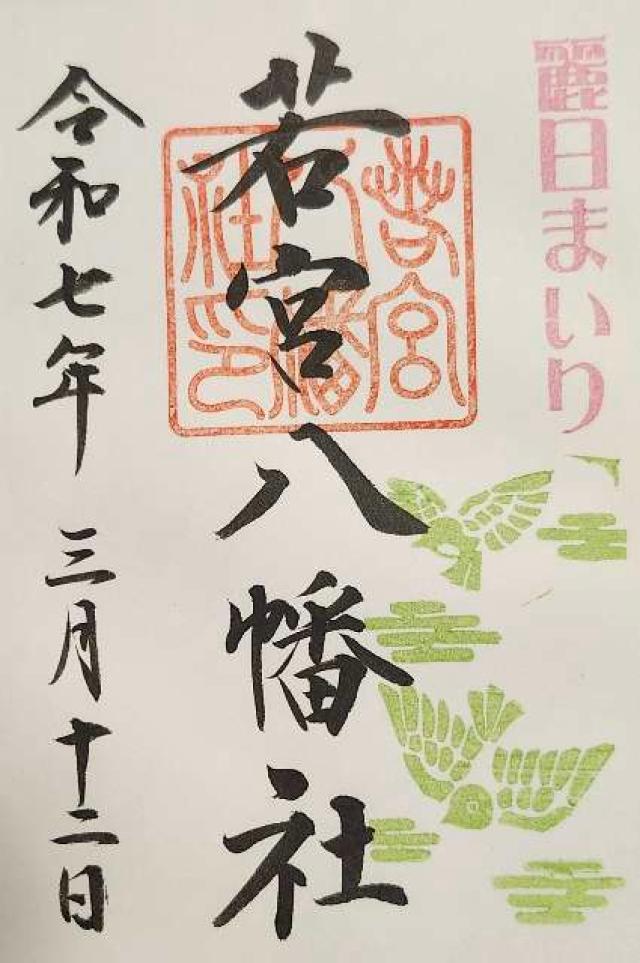 麗日まいり
若宮八幡社
若宮
八幡
社印
令和七年三月十二日